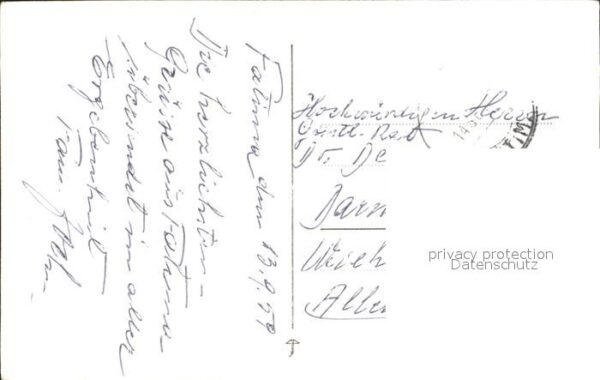 Fatima den 13.9.59
Die herzlichsten
Grüße aus Fatima
übersendet in aller
Ergebenheit
Fam.
Hochwürdigen Herrn
Geistl. Rat
Dr. De
Darm
Weih
Alle
privacy protection
Datenschutz